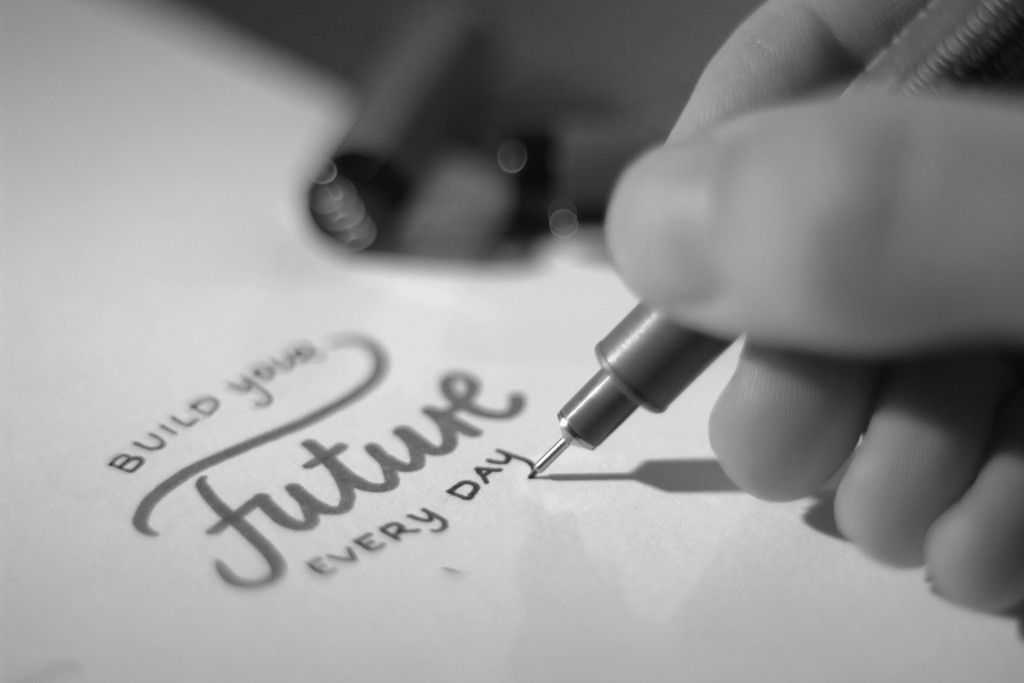 BUILD your
Future
EVERY DAY